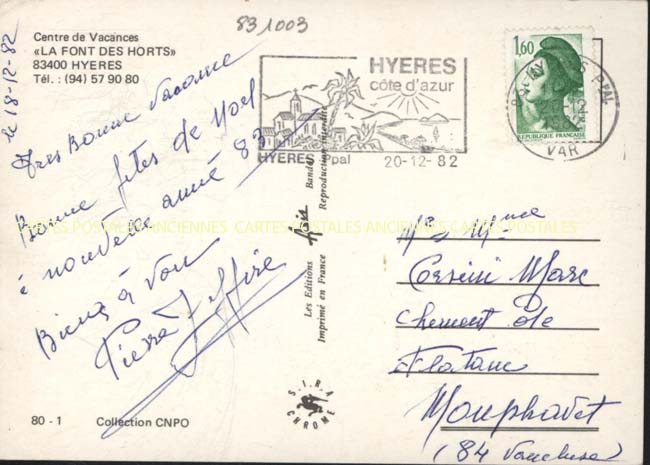 831003
Centre de Vacances
«LA FONT DES HORTS»
83400 HYERES
Tél. : (94) 57 90 80
le 18-12-82
Tres Bonne Vacance
Bonne fetes de Noel
é nouvelle anné 83
Bien à Vou
Pierre
HYERES
côte d'azur
HYERES Ppal
20-12-82
1,60
REPUBLIQUE FRANÇAISE
PPAL
20-12
VAR
CARTES POSTALES ANCIENNES CARTES POSTALES ANCIENNES CARTES POSTALES
Les Editions Aris Bandol
Imprimé en France Reproduction interdite
Mr Mme
Corsini Marc
chement de
Platane
(84 Vaucluse)
S.I.R.A.
CHROME
80 - 1 Collection CNPO